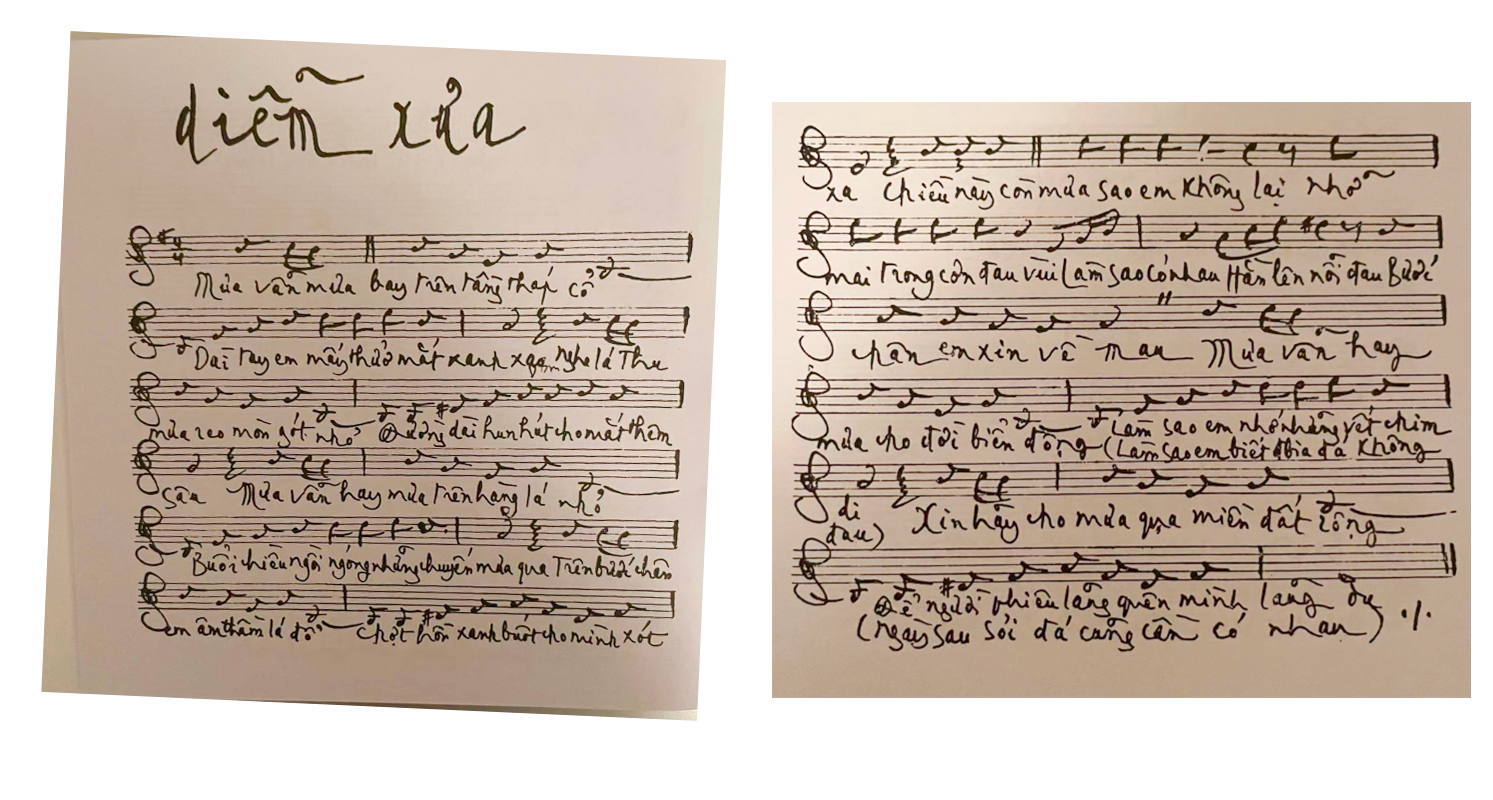 diễm xưa
Mưa vẫn mưa bay trên tầng tháp cổ
Dài tay em mấy thuở mắt xanh xao nghe lá Thu
mưa reo mòn gót nhỏ Đường dài hun hút cho mắt thêm
sâu Mưa vẫn hay mưa trên hàng lá nhỏ
Buổi chiều ngồi ngóng những chuyến mưa qua Trên bước chân
em âm thầm lá đổ Chợt hồn xanh buốt cho mình xót
xa Chiều này còn mưa sao em Không lại nhỡ
mai trong cơn đau vùi Làm sao có nhau Hằn lên nỗi đau Bước
chân em xin về mau Mưa vẫn hay
mưa cho đời biển động Làm sao em nhớ những vết chim
(Làm sao em biết bia đá Không
di Xin hãy cho mưa qua miền đất rộng
đau)
Để người phiêu lãng quên mình lãng du
(ngày sau sỏi đá cũng cần có nhau) ./.